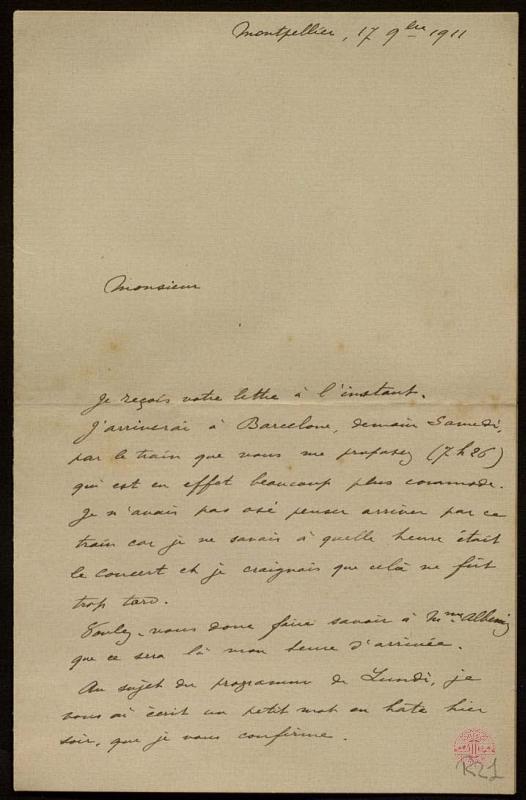 Montpellier, 17 9bre 1911
Monsieur
Je reçois votre lettre à l'instant.
J'arriverai à Barcelone, demain Samedi,
par le train que vous me proposez (7h26)
qui est en effet beaucoup plus commode.
Je n'avais pas osé penser arriver par ce
train car je ne savais à quelle heure était
le concert et je craignais que celà ne fût
trop tard.
Voulez-vous donc faire savoir à Mme Albeniz
que ce sera là mon heure d'arrivée.
Au sujet du programme de Lundi, je
vous ai écrit un petit mot en hate hier
soir, que je vous confirme.
R21